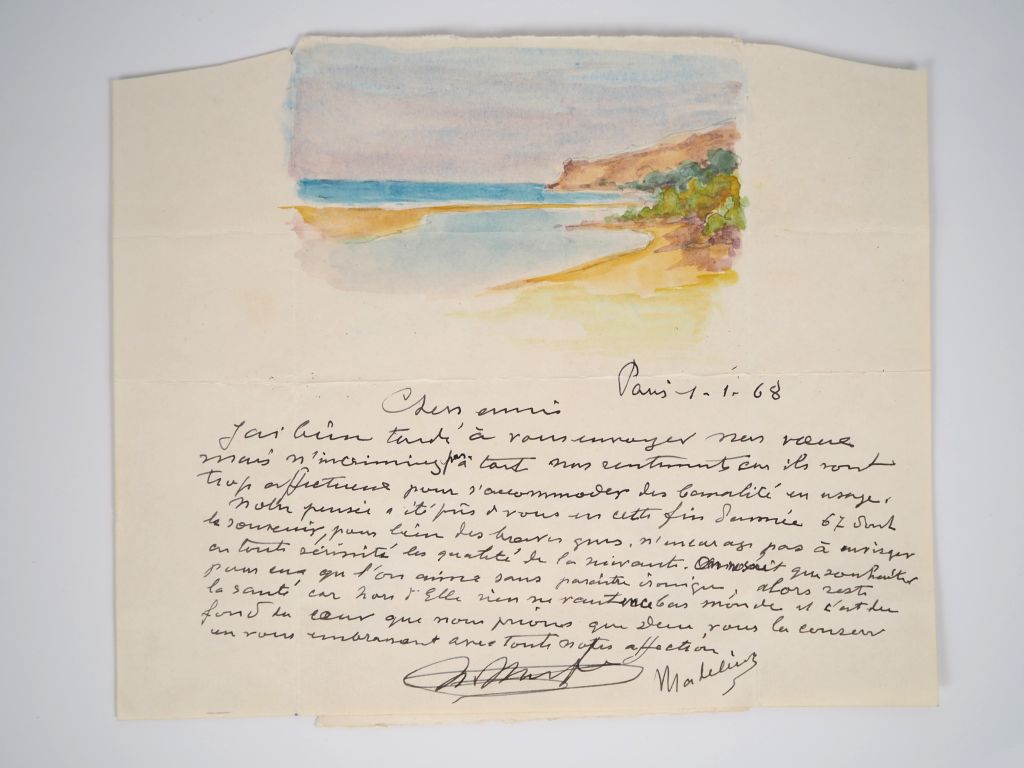 Paris 1. 1. 68
Chers amis
J'ai bien tardé à vous envoyer nos vœux
mais n'incriminez pas à tort nos sentiments car ils sont
trop affectueux pour s'accommoder des banalité en usage.
Notre pensée a été près d vous en cette fin d'année 67 dont
le souvenir, pour bien des braves gens, n'encourage pas à envisager
en toute sérénité les qualité de la suivante. On ne sait que souhaiter
pour ceux que l'on aime sans paraître ironique, alors reste
la santé car hors d'Elle rien ne vaut en ce bas monde et c'est du
fond du cœur que nous prions que Dieu vous la conserve
en vous embrassant avec toute notre affection
Madeleine